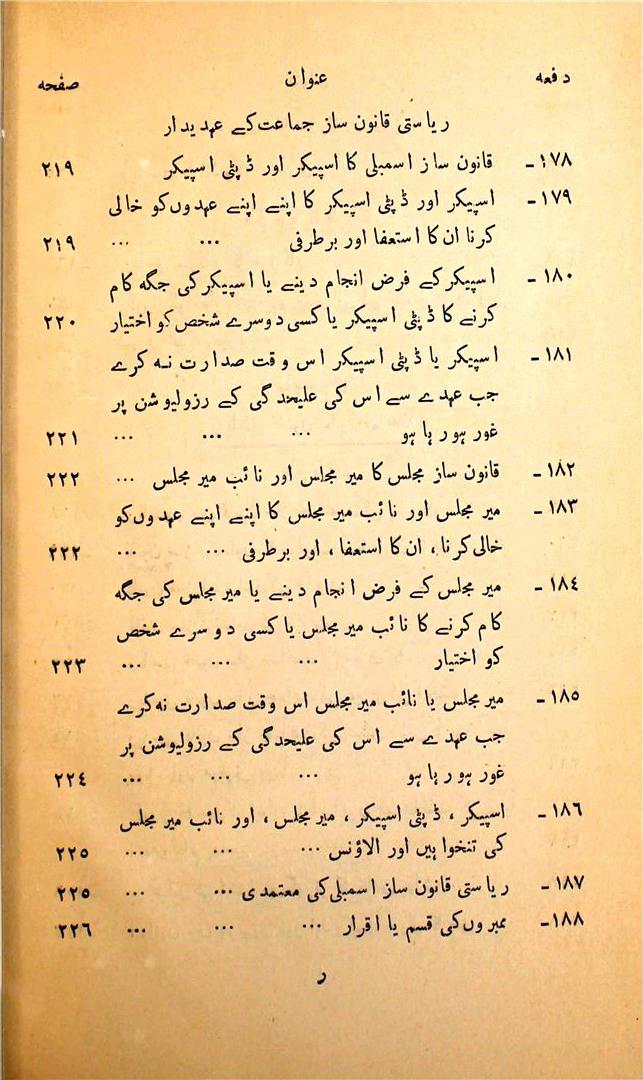 دفعہ عنوان صفحہ
ریاستی قانون ساز جماعت کے عہدیدار
۱۷۸ـ قانون ساز اسمبلی کا اسپیکر اور ڈپٹی اسپیکر ۲۱۹
۱۷۹ـ اسپیکر اور ڈپٹی اسپیکر کا اپنے اپنے عہدوں کو خالی
کرنا ان کا استعفا اور برطرفی ... ... ۲۱۹
۱۸۰ـ اسپیکر کے فرض انجام دینے یا اسپیکر کی جگہ کام
کرنے کا ڈپٹی اسپیکر یا کسی دوسرے شخص کو اختیار ۲۲۰
۱۸۱ـ اسپیکر یا ڈپٹی اسپیکر اس وقت صدارت نہ کرے
جب عہدے سے اس کی علیحدگی کے رزولیوشن پر
غور ہو رہا ہو ... ... ... ۲۲۱
۱۸۲ـ قانون ساز مجلس کا میر مجلس اور نائب میر مجلس ... ۲۲۲
۱۸۳ـ میر مجلس اور نائب میر مجلس کا اپنے اپنے عہدوں کو
خالی کرنا، ان کا استعفا، اور برطرفی ... ... ۲۲۲
۱۸٤ـ میر مجلس کے فرض انجام دینے یا میر مجلس کی جگہ
کام کرنے کا نائب میر مجلس یا کسی دوسرے شخص
کو اختیار ... ... ... ۲۲۳
۱۸۵ـ میر مجلس یا نائب میر مجلس اس وقت صدارت نہ کرے
جب عہدے سے اس کی علیحدگی کے رزولیوشن پر
غور ہو رہا ہو ... ... ... ۲۲٤
۱۸٦ـ اسپیکر، ڈپٹی اسپیکر، میر مجلس، اور نائب میر مجلس
کی تنخواہیں اور الاؤنس ... ... ... ۲۲۵
۱۸۷ـ ریاستی قانون ساز اسمبلی کی معتمدی ... ... ۲۲۵
۱۸۸ـ ممبروں کی قسم یا اقرار ... ... ... ۲۲٦
ر